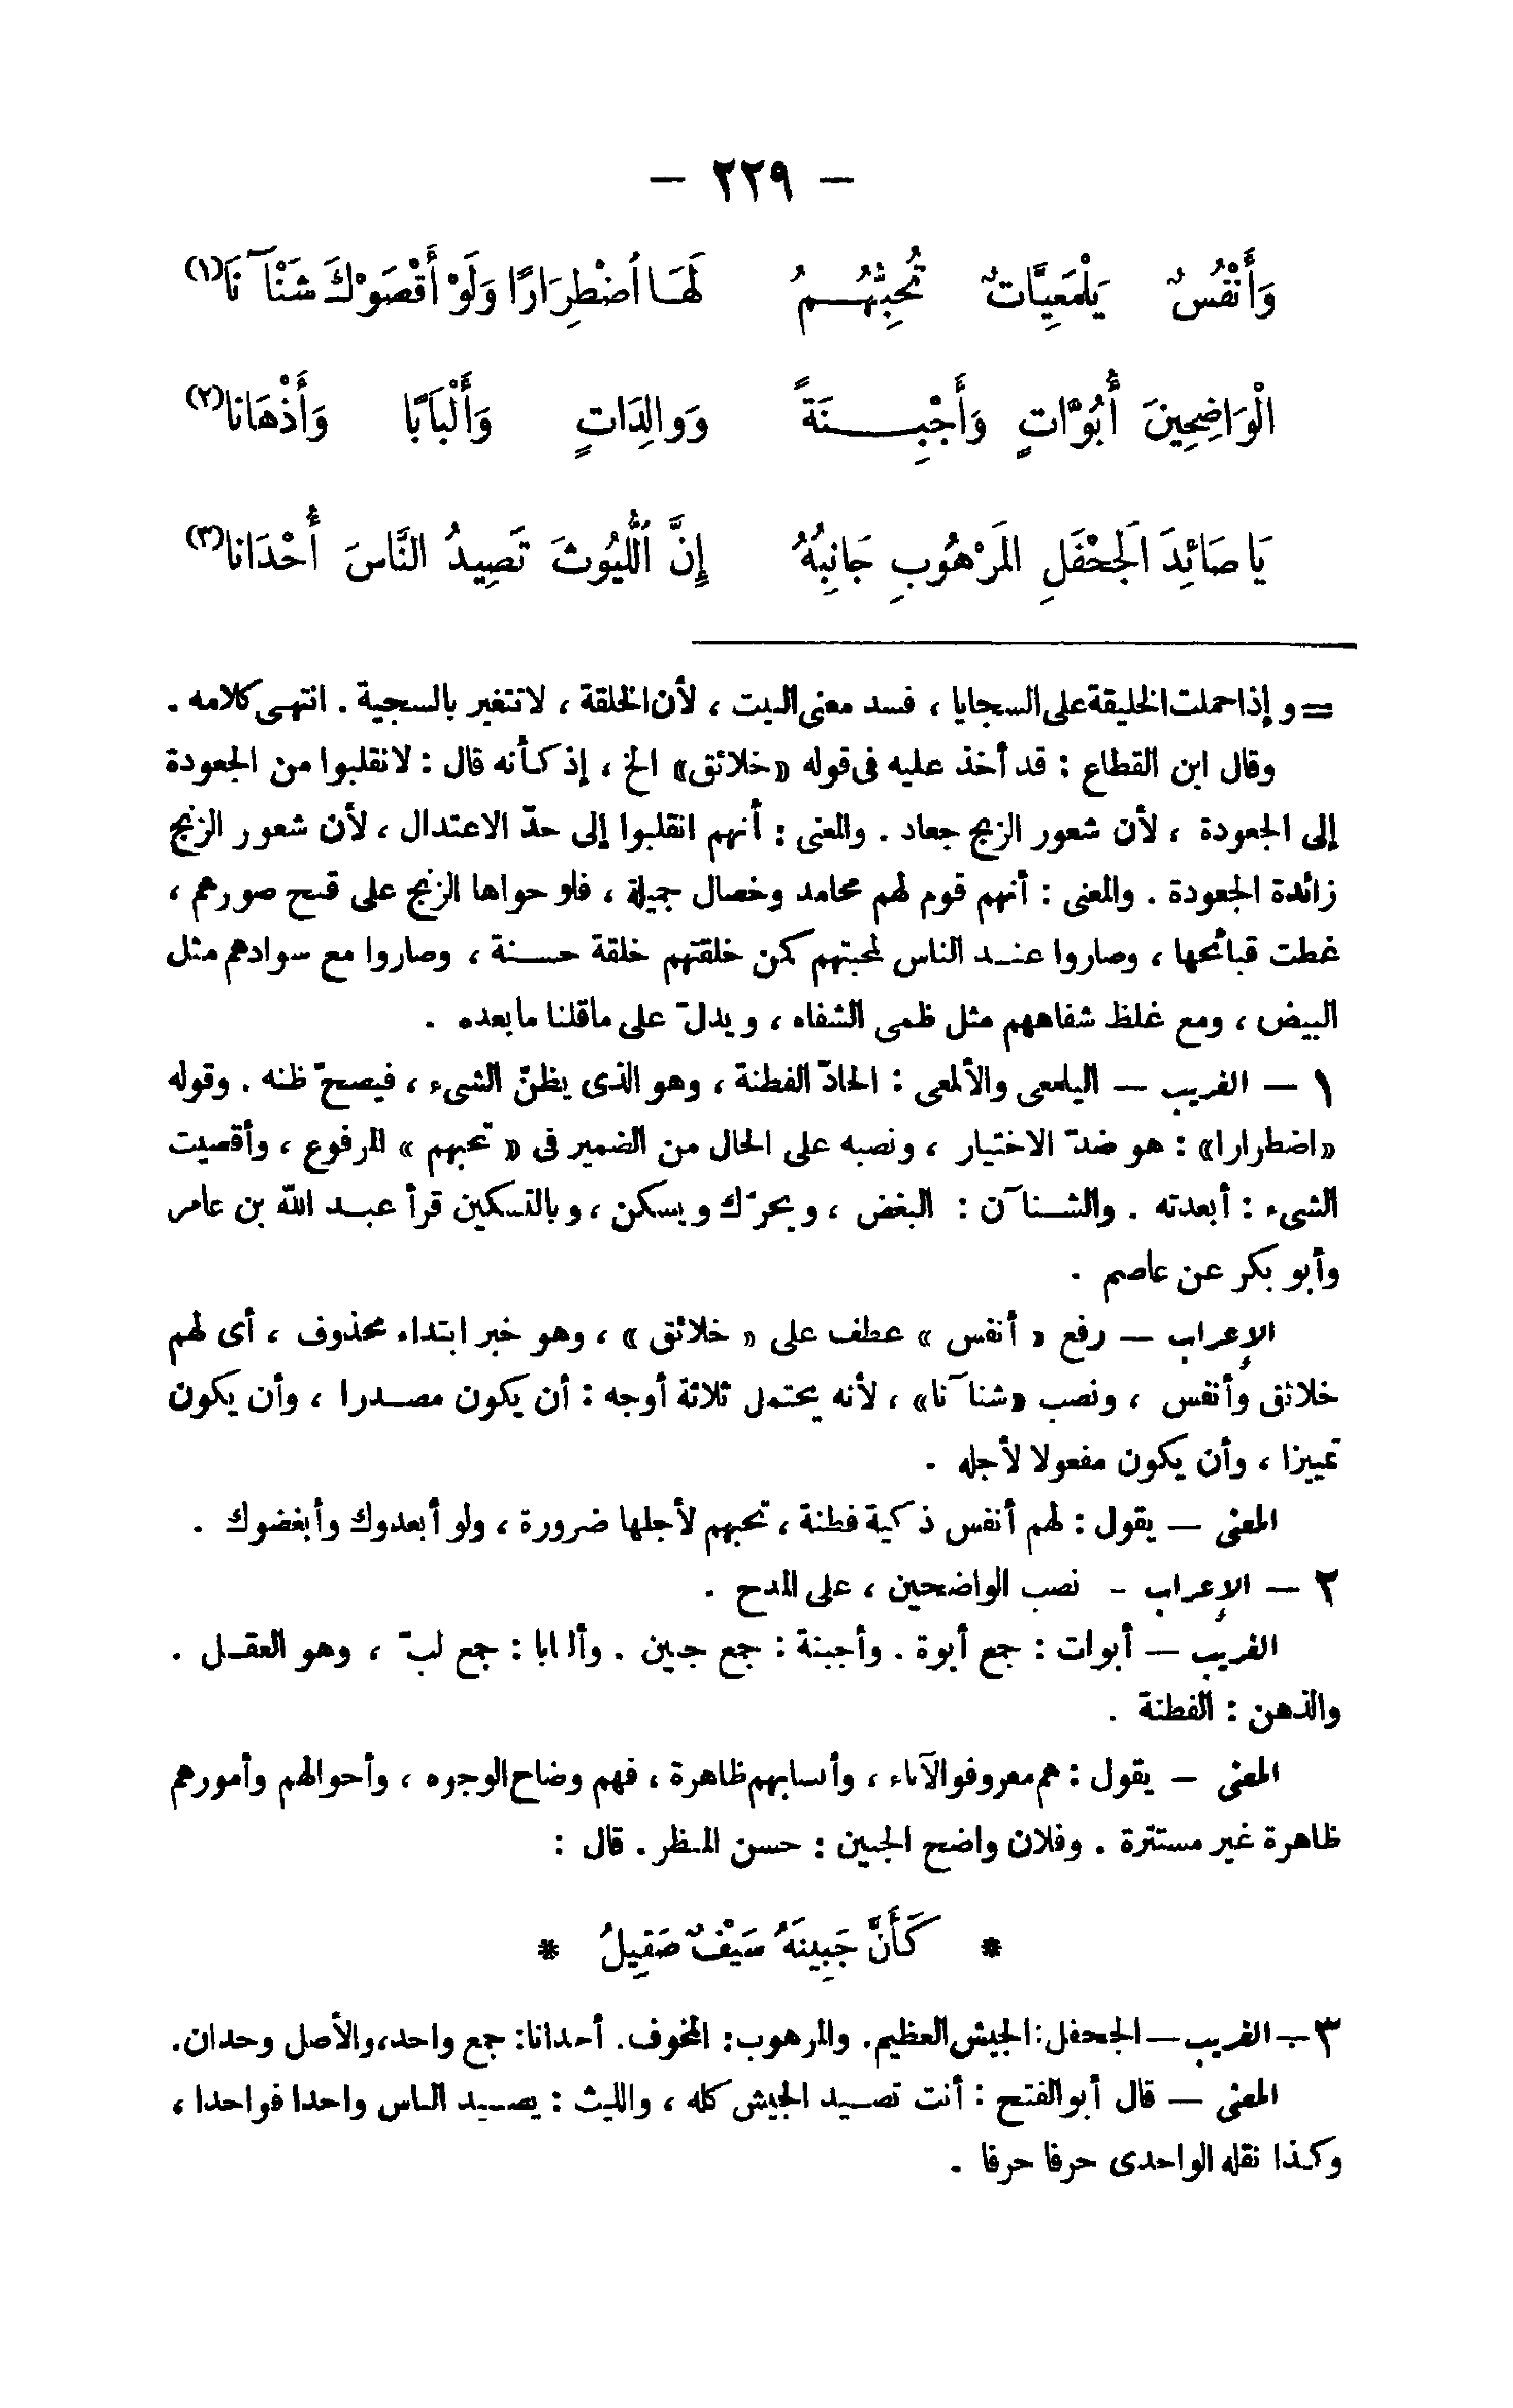 — ٢٢٩ —
وَأَنْفُسٌ يَلْمَعِيَّاتٌ تُحِبُّهُمُ لَهَا اُضْطِرَارًا وَلَوْ أَقْصَوْكَ شَنْآنَا(١)
الْوَاضِحِينَ أُبُوَّاتٍ وَأَجْبِنَةً وَوالِدَاتٍ وَأَلْبَابًا وَأَذْهَانا(٢)
يَا صَائِدَ الَجحْفَلِ المَرْهُوبِ جَانِبُهُ إِنَّ اللُّيُوثَ تَصِيدُ النَّاسَ أُحْدَانا(٣)
= و إذا حملت الخليقة على السجايا ، فسد معنى البيت ، لأن الخلقة ، لا تتغير بالسجية . انتهى كلامه .
وقال ابن القطاع : قد أخذ عليه فى قوله «خلائق» الخ ، إذ كأنه قال : لانقلبوا من الجعودة
إلى الجعودة ، لأن شعور الزنج جعاد . والمعنى : أنهم انقلبوا إلى حدّ الاعتدال ، لأن شعور الزنج
زائدة الجعودة . والمعنى : أنهم قوم لهم محامد وخصال جميلة ، فلو حواها الزنج على قبح صورهم ،
غطت قبائحها ، وصاروا عنـد الناس لمحبتهم كمن خلقتهم خلقة حسنة ، وصاروا مع سوادهم مثل
البيض ، ومع غلظ شفاههم مثل ظمى الشفاه ، و يدلّ على ماقلنا مابعده .
١ — الغريب — اليلمعى والألمعى : الحادّ الفطنة ، وهو الذى يظنّ الشىء ، فيصحّ ظنه . وقوله
«اضطرارا» : هو ضدّ الاختيار ، ونصبه على الحال من الضمير فى « تحبهم » المرفوع ، وأقصيت
الشىء : أبعدته . والشـنآن : البغض ، و يحرّك و يسكن ، و بالتسكين قرأ عبـد الله بن عامر
وأبو بكر عن عاصم .
الإعراب — رفع « أنفس » عطف على « خلائق » ، وهو خبر ابتداء محذوف ، أى لهم
خلائق وأنفس ، ونصب «شنآنا» ، لأنه يحتمل ثلاثة أوجه : أن يكون مصـدرا ، وأن يكون
تمييزا ، وأن يكون مفعولا لأجله .
المعنى — يقول : لهم أنفس ذكية فطنة ، تحبهم لأجلها ضرورة ، ولو أبعدوك وأبغضوك .
٢ — الإعراب - نصب الواضحين ، على المدح .
الغريب — أبوات : جمع أبوة . وأجبنة : جمع جبين . وألبابا : جمع لبّ ، وهو العقـل .
والذهن : الفطنة .
المعنى — يقول : هم معروفو الآباء ، وأنسابهم ظاهرة ، فهم وضاح الوجوه ، وأحوالهم وأمورهم
ظاهرة غير مستترة . وفلان واضح الجبين : حسن المنظر . قال :
* كَأَنَّ جَبِينَهُ سَيْفٌ صَقِيلُ *
٣ — الغريب — الجحفل : الجيش العظيم . والمرهوب : المخوف . أحدانا : جمع واحد ، والأصل وحدان .
المعنى — قال أبو الفتح : أنت تصـيد الجيش كله ، والليث : يصـيد الناس واحدا فواحدا ،
وكذا نقله الواحدى حرفا حرفا .